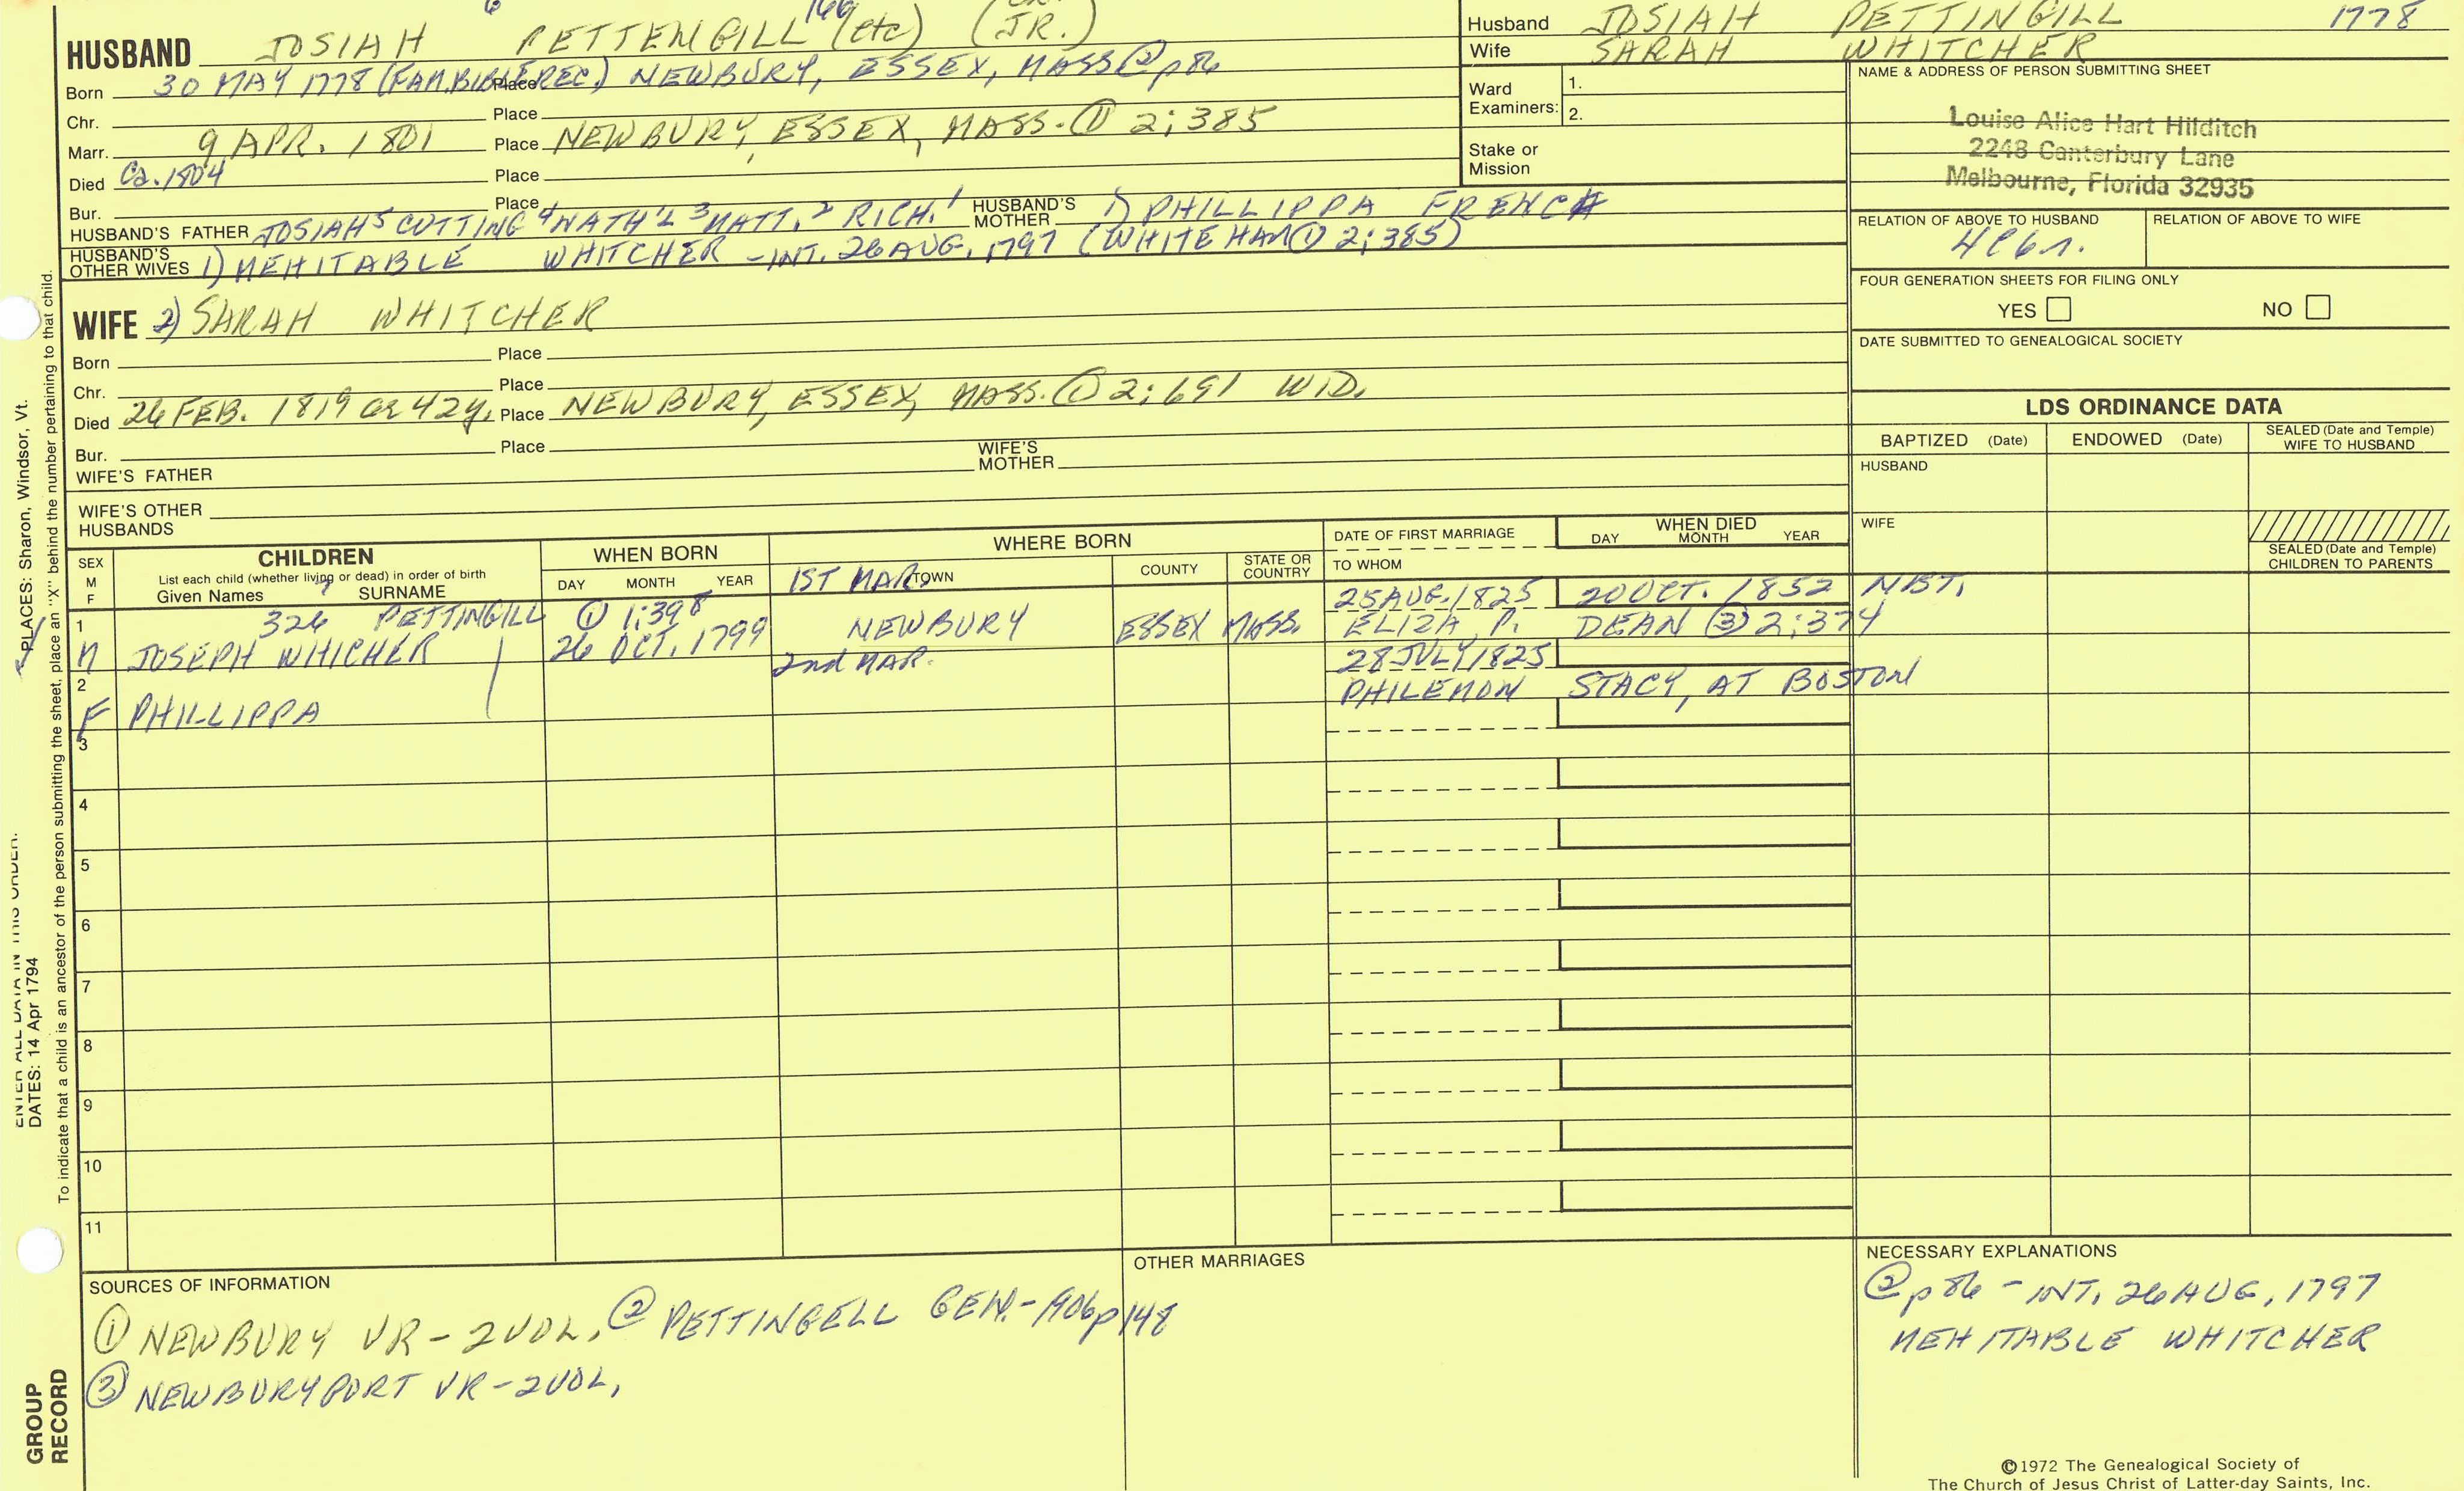 6 166
HUSBAND JOSIAH PETTENGILL (etc) (JR.)
Born 30 MAY 1778 (FAM.BIBLE REC.) Place NEWBURY, ESSEX, MASS ② p86
Chr. Place
Marr. 9 APR. 1801 Place NEWBURY, ESSEX, MASS. ① 2:385
Died Ca. 1804 Place
Bur. Place
HUSBAND'S FATHER JOSIAH 5 CUTTING 4 NATH'L 3 MATT. 2 RICH. 1 HUSBAND'S MOTHER 1) PHILLIPPA FRENCH
HUSBAND'S OTHER WIVES 1) MEHITABLE WHITCHER - INT. 26 AUG. 1797 (WHITEHAM ① 2:385)
Husband JOSIAH PETTINGILL 1778
Wife SARAH WHITCHER
Ward Examiners: 1.
2.
Stake or Mission
NAME & ADDRESS OF PERSON SUBMITTING SHEET
Louise Alice Hart Hilditch
2248 Canterbury Lane
Melbourne, Florida 32935
RELATION OF ABOVE TO HUSBAND RELATION OF ABOVE TO WIFE
FOUR GENERATION SHEETS FOR FILING ONLY
YES NO
DATE SUBMITTED TO GENEALOGICAL SOCIETY
WIFE 2) SARAH WHITCHER
Born Place
Chr. Place
Died 26 FEB. 1819 ae 42y. Place NEWBURY, ESSEX, MASS. ① 2:691 WID.
Bur. Place
WIFE'S FATHER WIFE'S MOTHER
WIFE'S OTHER HUSBANDS
LDS ORDINANCE DATA
BAPTIZED (Date) ENDOWED (Date) SEALED (Date and Temple) WIFE TO HUSBAND
HUSBAND
WIFE
SEALED (Date and Temple) CHILDREN TO PARENTS
SEX M F CHILDREN WHEN BORN WHERE BORN DATE OF FIRST MARRIAGE WHEN DIED
List each child (whether living or dead) in order of birth
Given Names SURNAME DAY MONTH YEAR TOWN COUNTY STATE OR COUNTRY TO WHOM DAY MONTH YEAR
7 1ST MAR.
1 326 PETTINGILL ① 1:398 25 AUG. 1825 20 OCT. 1852 NBT.
M JOSEPH WHICHER 26 OCT. 1799 NEWBURY ESSEX MASS. ELIZA P. DEAN ③ 2:374
2 2nd MAR. 28 JULY 1825
F PHILLIPPA PHILEMON STACY, AT BOSTON
3
4
5
6
7
8
9
10
11
SOURCES OF INFORMATION
① NEWBURY VR - 2 VOL. ② PETTINGELL GEN. - 1906 p148
③ NEWBURYPORT VR - 2 VOL.
OTHER MARRIAGES
NECESSARY EXPLANATIONS
② p86 - INT. 26 AUG, 1797
MEHITABLE WHITCHER
©1972 The Genealogical Society of
The Church of Jesus Christ of Latter-day Saints, Inc.
PLACES: Sharon, Windsor, Vt.
To indicate that a child is an ancestor of the person submitting the sheet, place an "X" behind the number pertaining to that child.
ENTER ALL DATA IN THIS ORDER:
DATES: 14 Apr 1794
GROUP
RECORD